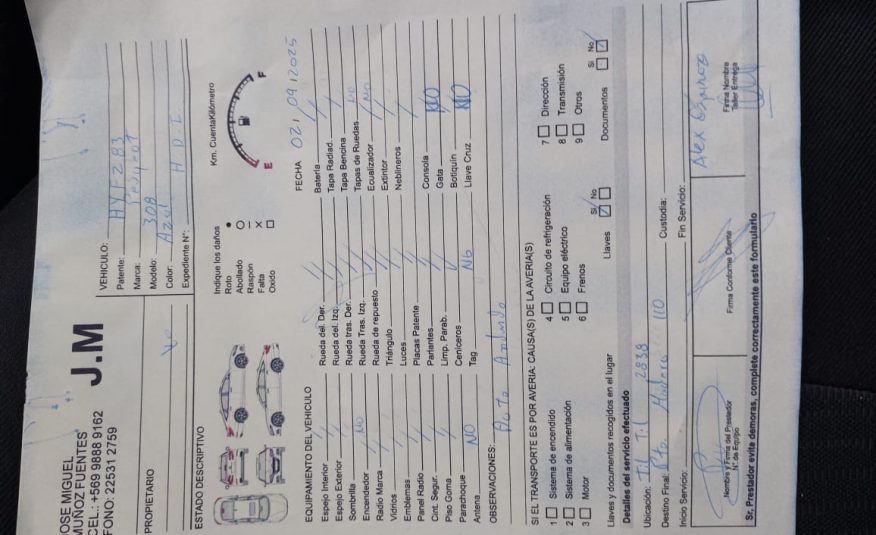 JOSE MIGUEL
MUÑOZ FUENTES
CEL.: +569 9888 9162
FONO: 22531 2759
J.M
PROPIETARIO
VEHICULO:
Patente: HYFZ83
Marca: Peugeot
Modelo: 308
Color: Azul H.D.I
Expediente N°:
ESTADO DESCRIPTIVO
Indique los daños
Roto
Abollado
Raspón
Falta
Oxido
Km. CuentaKilómetro
E F
EQUIPAMIENTO DEL VEHICULO
FECHA 02/09/2025
Espejo Interior // Rueda del. Der. // Batería //
Espejo Exterior // Rueda del. Izq. // Tapa Radiad. /
Sombrilla Rueda tras. Der. // Tapa Bencina
Encendedor NO Rueda Tras. Izq. // Tapas de Ruedas NO
Radio Marca // Rueda de repuesto // Ecualizador NO
Vidrios // Triángulo Extintor /
Emblemas // Luces // Neblineros /
Panel Radio // Placas Patente //
Cint. Segur. // Parlantes // Consola NO
Piso Goma // Limp. Parab. Gata /
Parachoque // Ceniceros Botiquín NO
Antena NO Tag No Llave Cruz
OBSERVACIONES: Auto
SI EL TRANSPORTE ES POR AVERIA: CAUSA(S) DE LA AVERIA(S)
1 Sistema de encendido 4 Circuito de refrigeración 7 Dirección
2 Sistema de alimentación 5 Equipo eléctrico 8 Transmisión
3 Motor 6 Frenos 9 Otros
Llaves y documentos recogidos en el lugar Llaves Si No Documentos Si No
Detalles del servicio efectuado
Ubicación: Til Til 2838
Destino Final: Pto Madero 110 Custodia:
Inicio Servicio: Fin Servicio:
Alex
Nombre y Firma del Prestador
N° de Equipo
Firma Conforme Cliente
Firma Nombre
Taller Entrega
Sr. Prestador evite demoras, complete correctamente este formulario